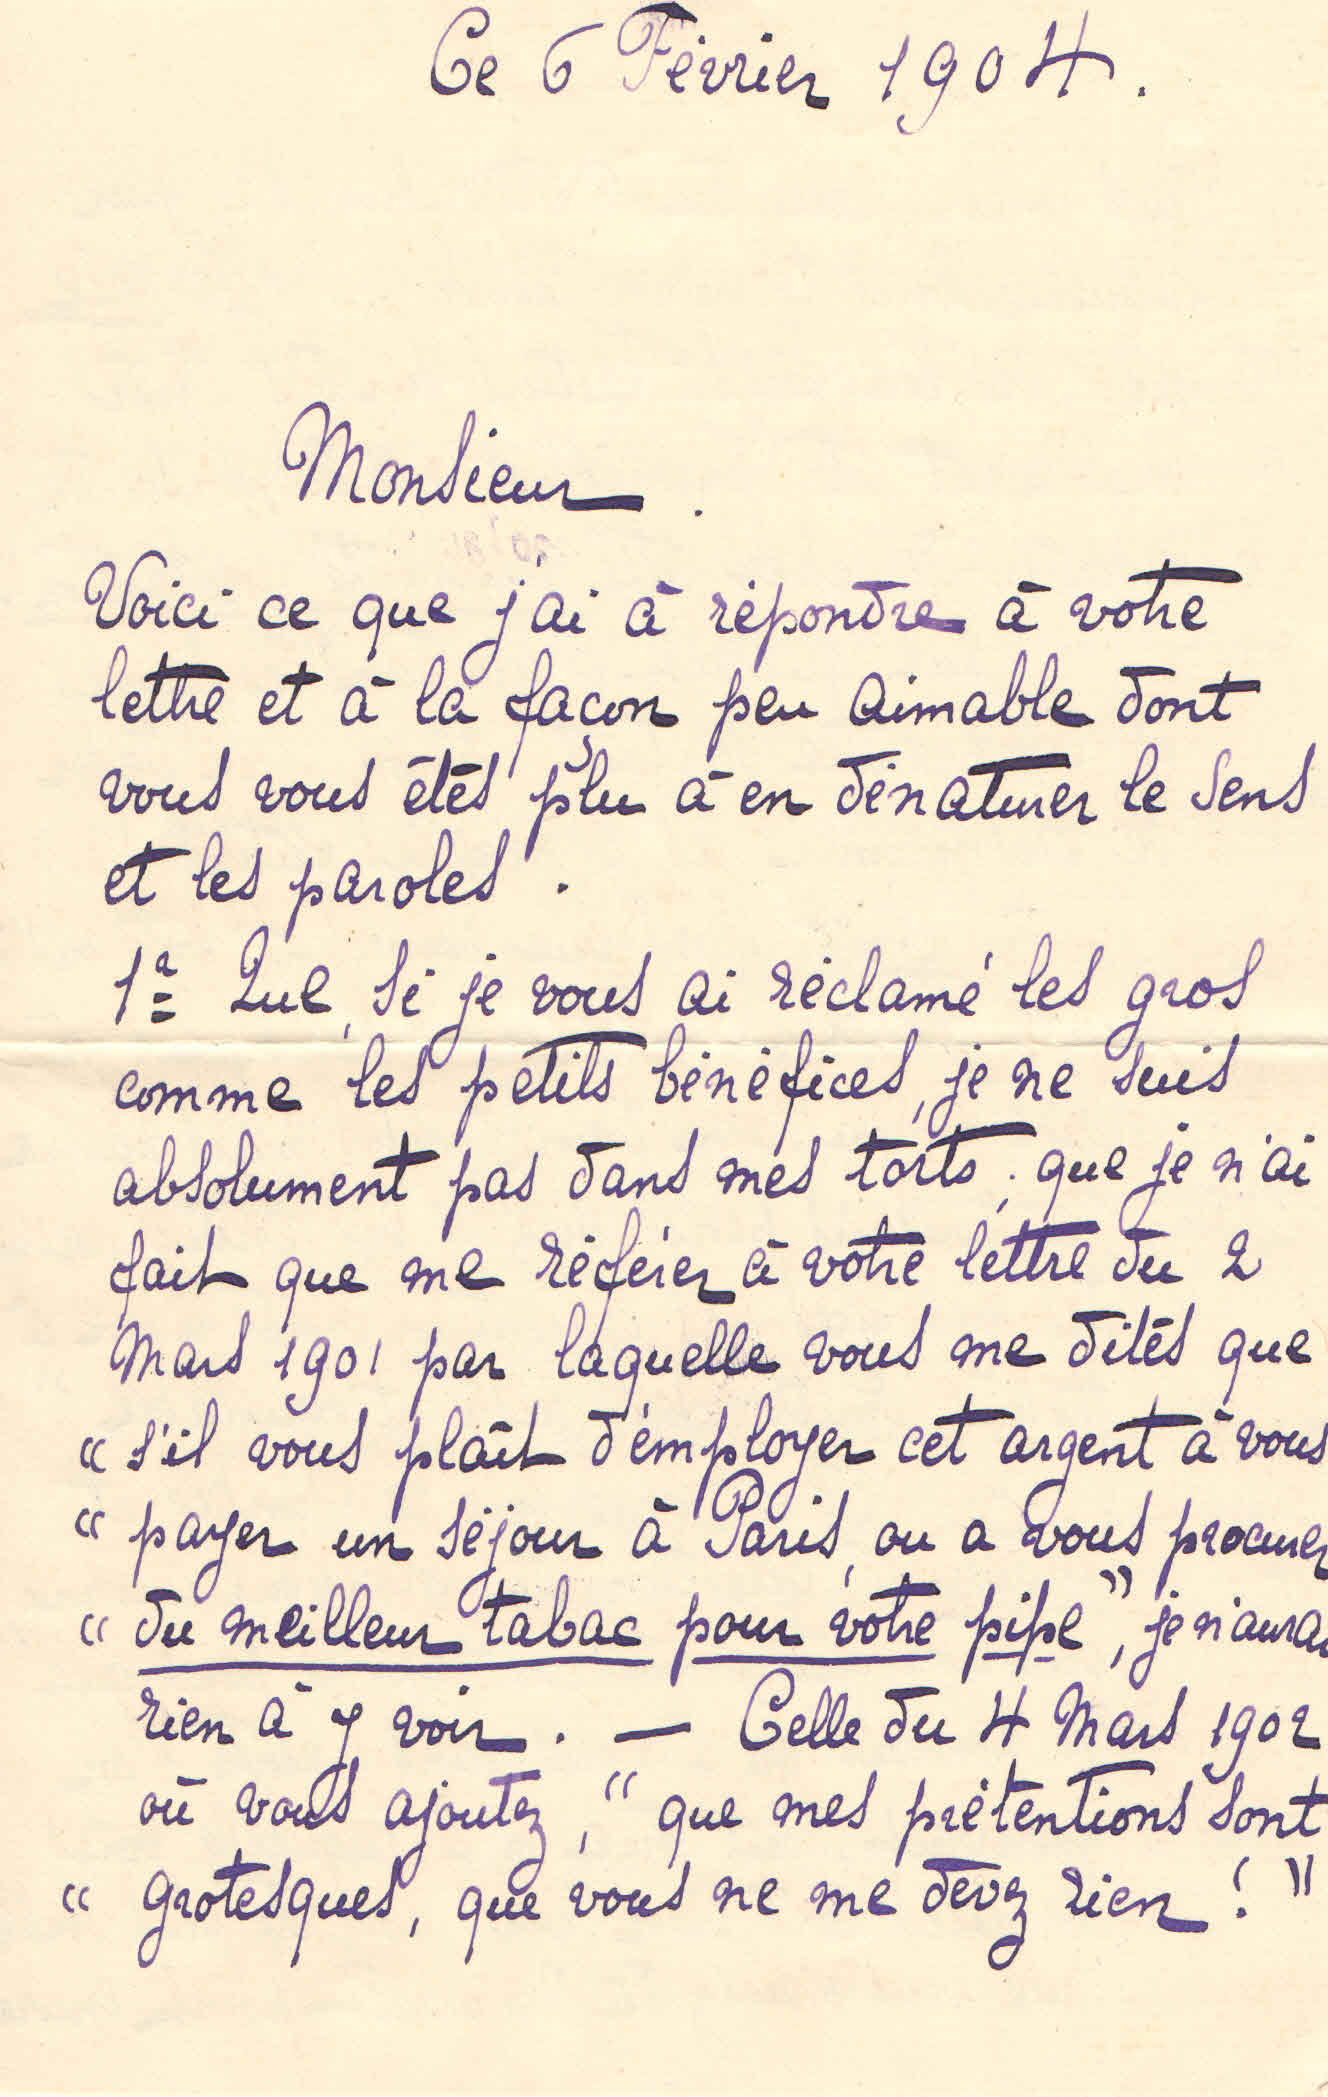 Ce 6 Février 1904.
Monsieur.
Voici ce que j'ai à répondre à votre
lettre et à la façon peu aimable dont
vous vous êtes plu à en dénaturer le sens
et les paroles.
1º Que, si je vous ai réclamé les gros
comme les petits bénéfices, je ne suis
absolument pas dans mes torts; que je n'ai
fait que me référer à votre lettre du 2
Mars 1901 par laquelle vous me dites que
" s'il vous plaît d'employer cet argent à vous
" payer un séjour à Paris, ou a vous procurer
" du meilleur tabac pour votre pipe", je n'aurai
rien à y voir. — Celle du 4 Mars 1902
où vous ajoutez, " que mes prétentions sont
" grotesques, que vous ne me devez rien ! "